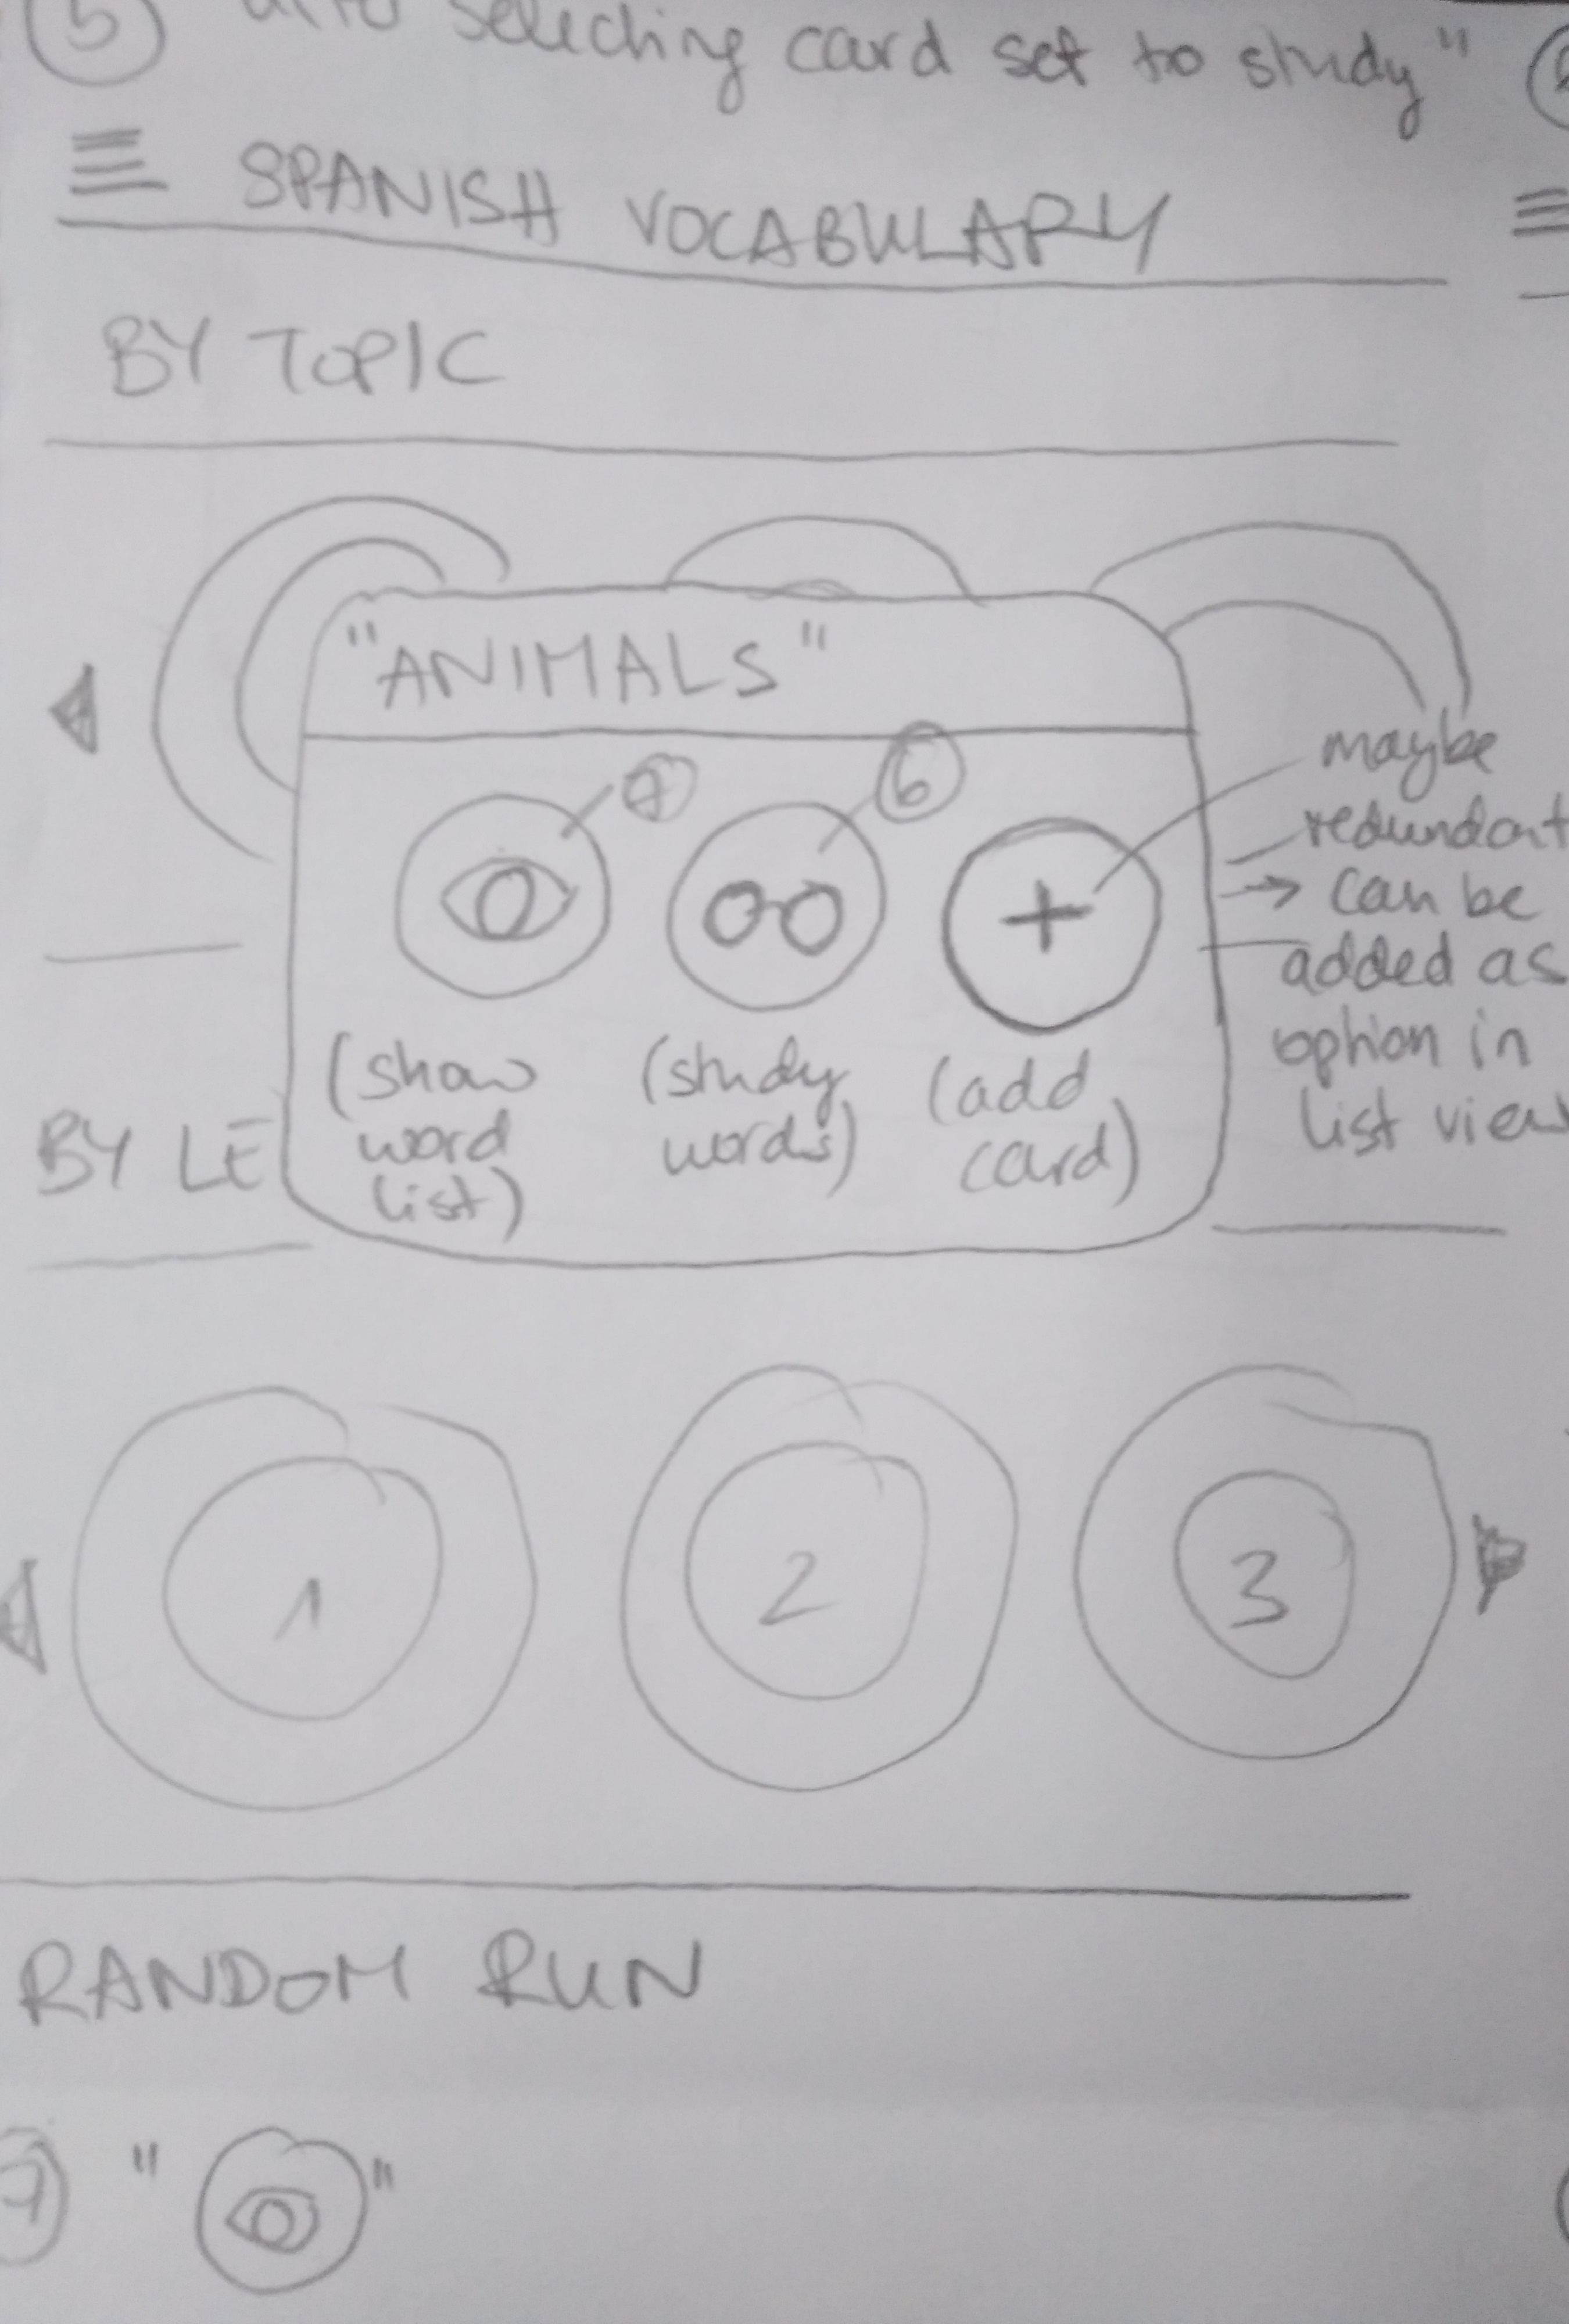 5 selecting card set to study"
SPANISH VOCABULARY
BY TOPIC
"ANIMALS"
7 6
+
(show word list)
(study words)
(add card)
maybe
redundant
→ can be
added as
option in
list view
BY LE
1 2 3
RANDOM RUN
7 " "